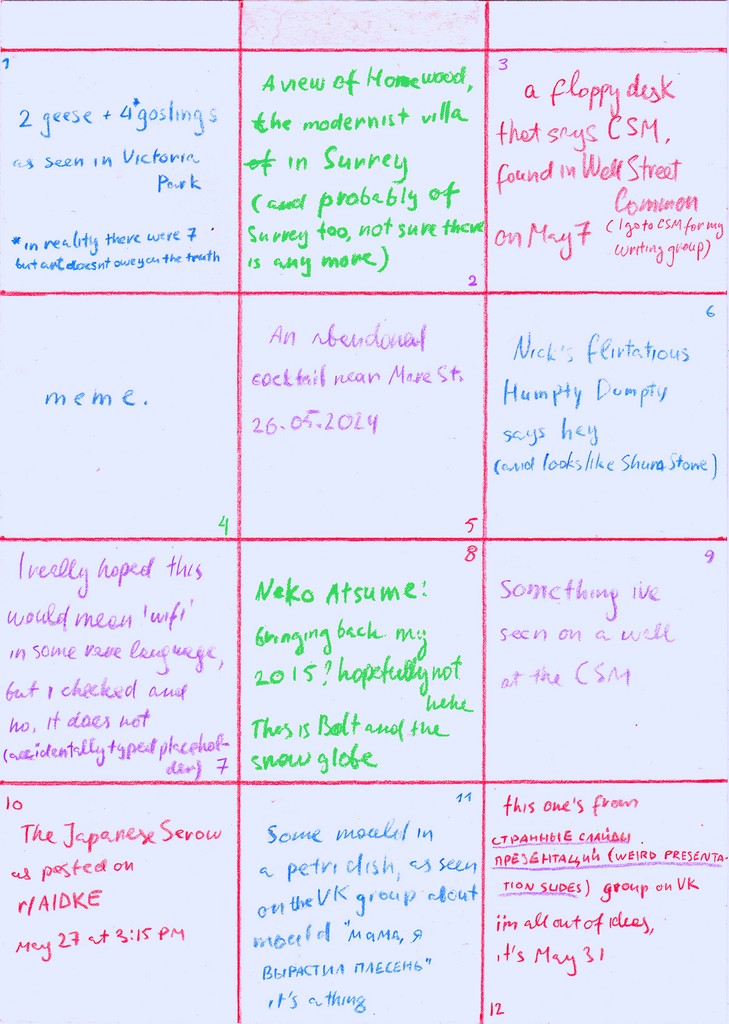 1
2 geese + 4* goslings
as seen in Victoria
Park
*in reality there were 7
but art doesnt owe you the truth
A view of Homewood,
the modernist villa
of in Surrey
(and probably of
Surrey too, not sure there
is any more)
2
3
a floppy desk
that says CSM,
found in Well Street
Common
on May 7 (I go to CSM for my
writing group)
meme.
4
An abandoned
cocktail near Mare St.
26.05.2024
5
6
Nick's flirtatious
Humpty Dumpty
says hey
(and looks like Shura Stone)
I really hoped this
would mean 'wifi'
in some rare language,
but I checked and
no, it does not
(accidentally typed placehol-
der) 7
8
Neko Atsume!
bringing back my
2015? hopefully not
hehe
This is Bolt and the
snow globe
9
Something ive
seen on a wall
at the CSM
10
The Japanese Serow
as posted on
r/AIDKE
May 27 at 3:15 PM
11
Some mould in
a petri dish, as seen
on the VK group about
mould "мама, я
вырастил плесень"
it's a thing
this one's from
СТРАННЫЕ СЛАЙДЫ
ПРЕЗЕНТАЦИЙ (WEIRD PRESENTA-
TION SLIDES) group on VK
i'm all out of ideas,
it's May 31
12